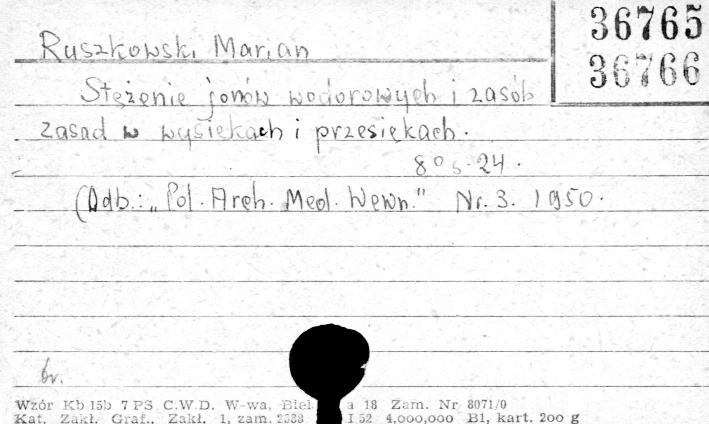 36765
Ruszkowski Marian
36766
Stężenie jonów wodorowych i zasób
zasad w wysiękach i przesiękach.
8° s. 24.
(Odb.: „Pol. Arch. Med. Wewn." Nr. 3. 1950.
br.
Wzór Kb 15b 7 PS C.W.D. W-wa, Biel a 18 Zam. Nr 8071/0
Kat. Zakł. Graf., Zakł. 1, zam. 2538 I 52 4,000,000 B1, kart. 200 g